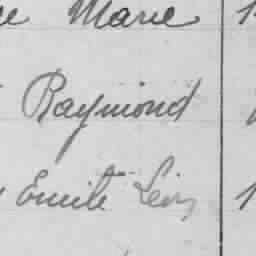 Marie
Raymond
Emile Léon